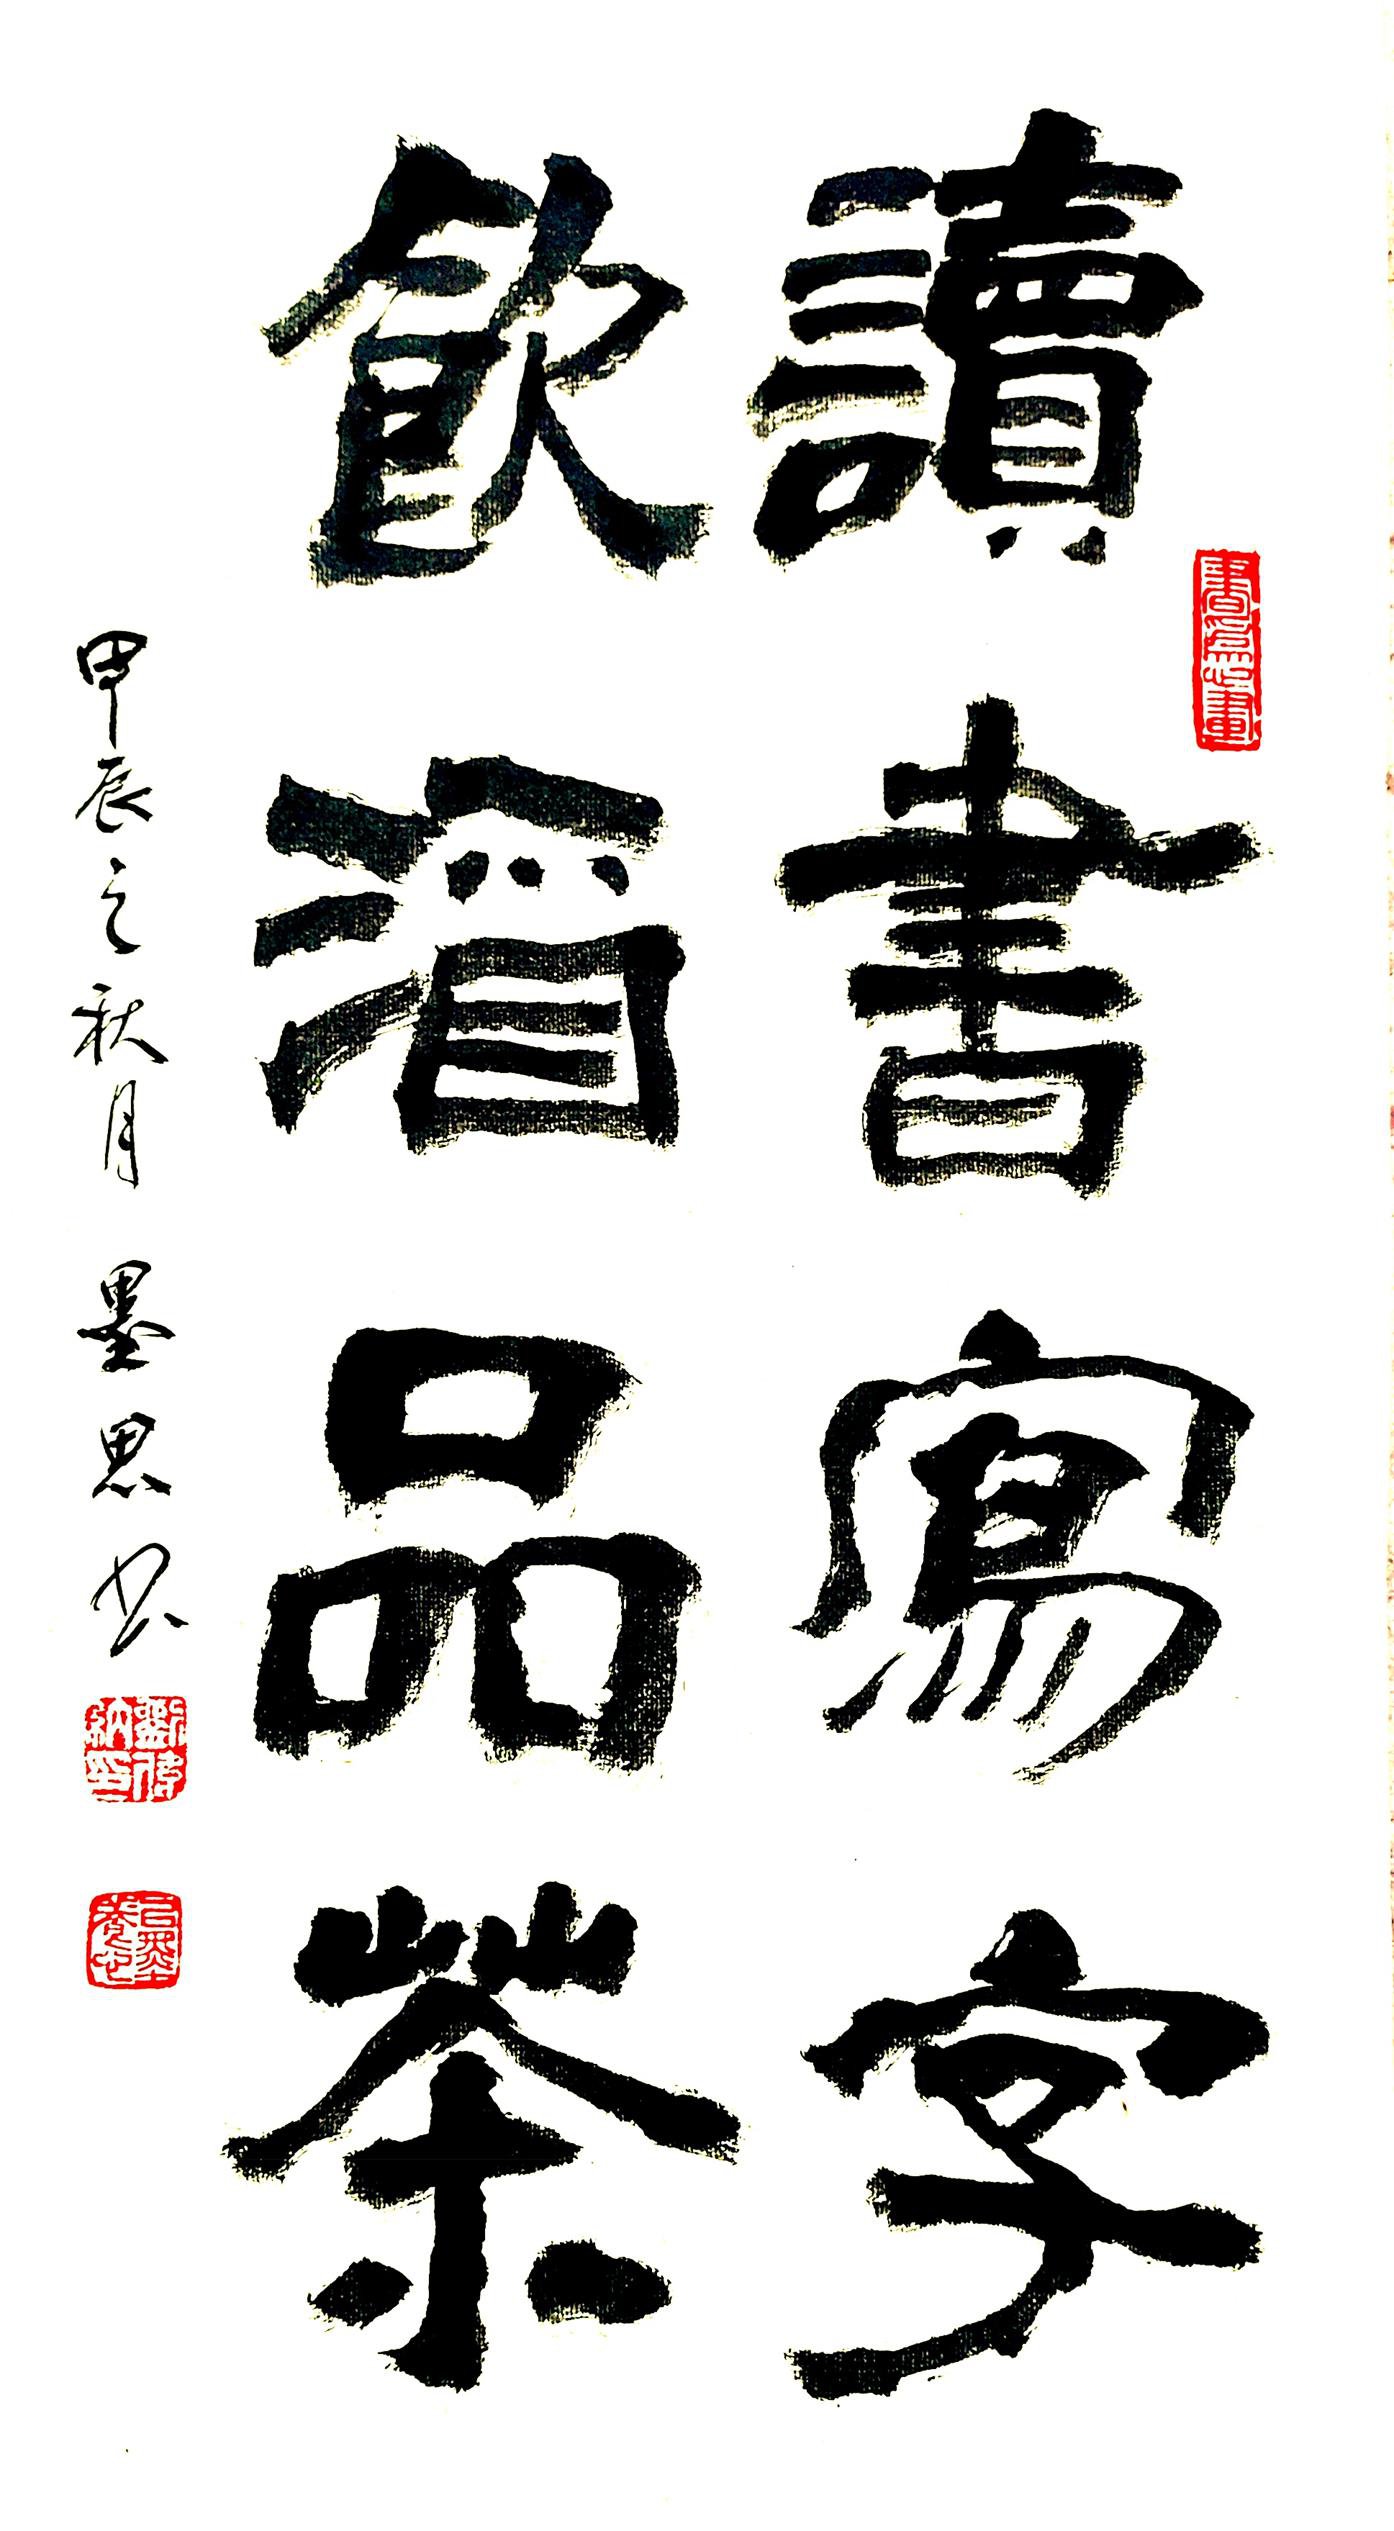 讀書寫字
飲酒品茶
甲辰之秋月 墨思书